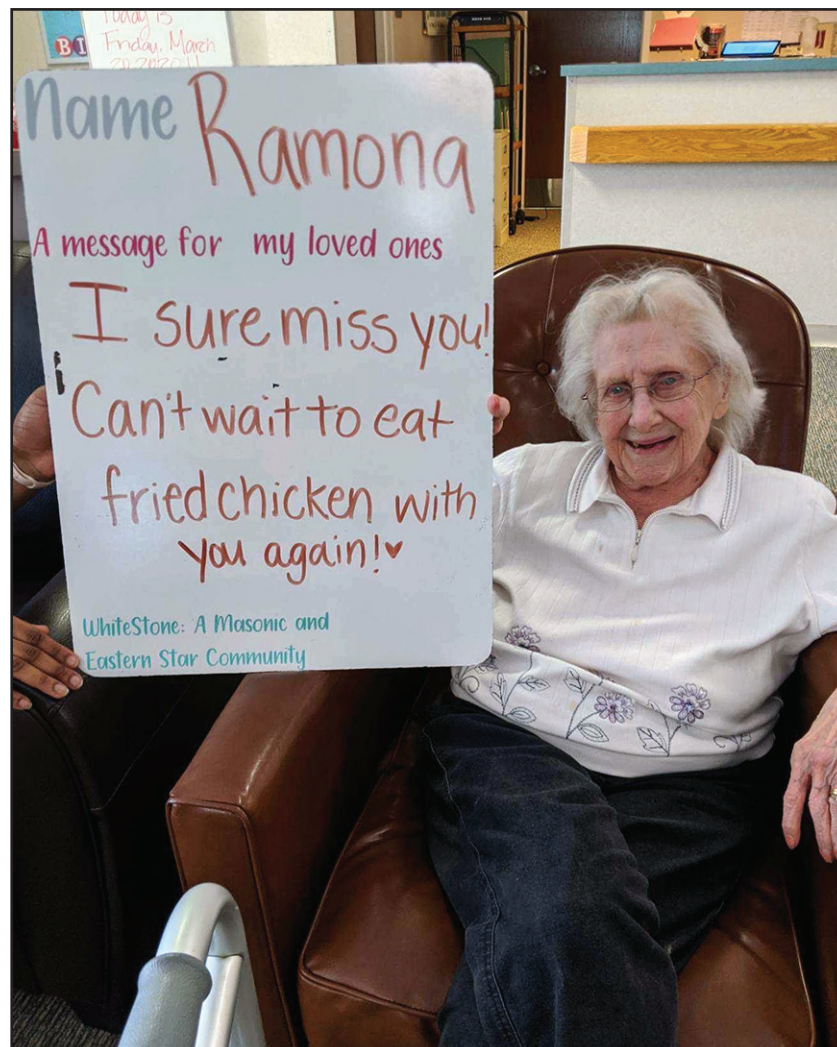 Today is
Friday, March
BI
Name Ramona
A message for my loved ones
I sure miss you!
Can't wait to eat
fried chicken with
you again!♥
WhiteStone: A Masonic and
Eastern Star Community